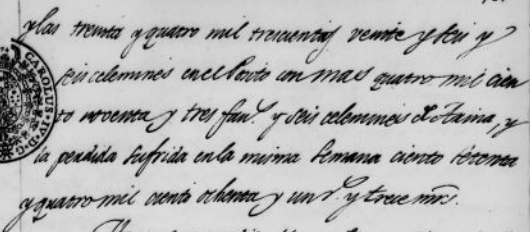 y las treinta y quatro mil trescientas veinte y seis y
seis celemines en el Posito con mas quatro mil cien
to noventa y tres fan.s y seis celemines de Arina, y
la perdida sufrida en la misma semana ciento setenta
y quatro mil ciento ochenta y un r.s y trece mrs.
CAROLUS IV D G